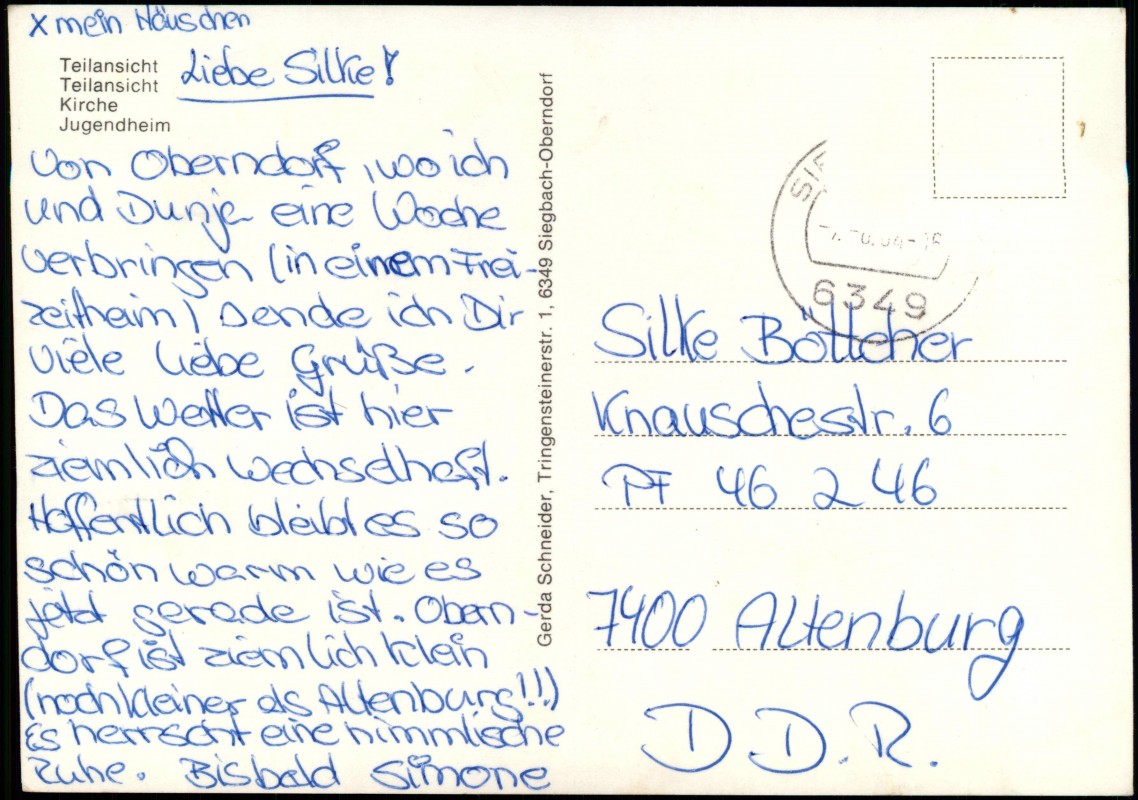 x mein Häuschen
Teilansicht
Teilansicht
Kirche
Jugendheim
Liebe Silke!
Von Oberndorf, wo ich
und Dunja eine Woche
verbringen (in einem Frei-
zeitheim) sende ich Dir
viele liebe Grüße.
Das Wetter ist hier
ziemlich wechselhaft.
Hoffentlich bleibt es so
schön warm wie es
jetzt gerade ist. Obern-
dorf ist ziemlich klein
(noch kleiner als Altenburg!!!)
Es herrscht eine himmlische
Ruhe. Bisbald Simone
Gerda Schneider, Tringensteinerstr. 1, 6349 Siegbach-Oberndorf
6349
Silke Böttcher
Knauschestr. 6
PF 46 246
7400 Altenburg
D.D.R.